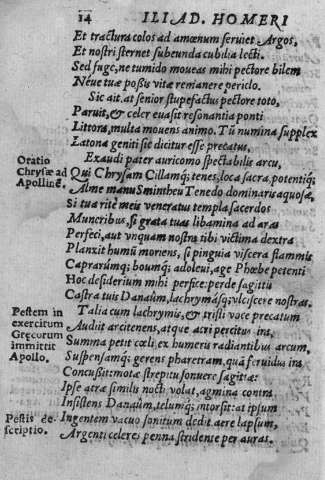 14 ILIAD. HOMERI
Et tractura colos ad amœnum serviet Argos,
Et nostri sternet subeunda cubilia lecti.
Sed fuge, ne tumido moveas mihi pectore bilem
Néve tuæ poßis vitæ remanere periclo.
Sic ait. at senior stupefactus pectore toto,
Paruit, & celer evasit resonantia ponti
Littora, multa movens animo. Tũ numina supplex
Latona geniti sic dicitur esse precatus.
Exaudi pater auricomo spectabilis arcu,
Oratio
Chrysæ ad
Apollinẽ.
Qui Chrysam Cillamq́; tenes, loca sacra, potentiq́;
Alme manu Smintheu Tenedo dominaris aquosæ,
Si tua ritè meis veneratus templa sacerdos
Muneribus, si grata tuas libamina ad aras
Perfeci, aut vnquam nostra tibi victima dextra
Planxit humũ moriens, si pinguia viscera flammis
Caprarũmq́; boumq́; adolevi, age Phœbe petenti
Hoc desiderium mihi perfice: perde sagittis
Castra tuis Danaûm, lachrymásq́; vlciscere nostras.
Pestem in
exercitum
Græcorum
immittit
Apollo.
Talia cum lachrymis, & tristi voce precatum
Audit arcitenens, atque acri percitus ira,
Summa petit cœli, ex humeris radiantibus arcum,
Suspensamq́; gerens pharetram, quã fervidus ira
Concussit: motæ strepitu sonuere sagittæ:
Ipse atræ similis nocti volat, agmina contra
Insistens Danaûm, telumq́; intorsit: at ipsum
Pestis de-
scriptio.
Ingentem vacuo sonitum dedit aere lapsum,
Argenti celeres penna stridente per auras.